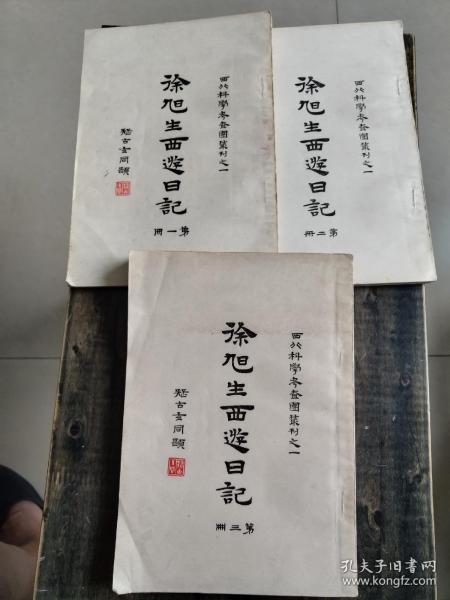 西北科學考查團叢刊之一
徐旭生西遊日記
第一冊
疑古玄同題
西北科學考查團叢刊之一
徐旭生西遊日記
第二冊
西北科學考查團叢刊之一
徐旭生西遊日記
第三冊
疑古玄同題
孔夫子旧书网
www.kongfz.com